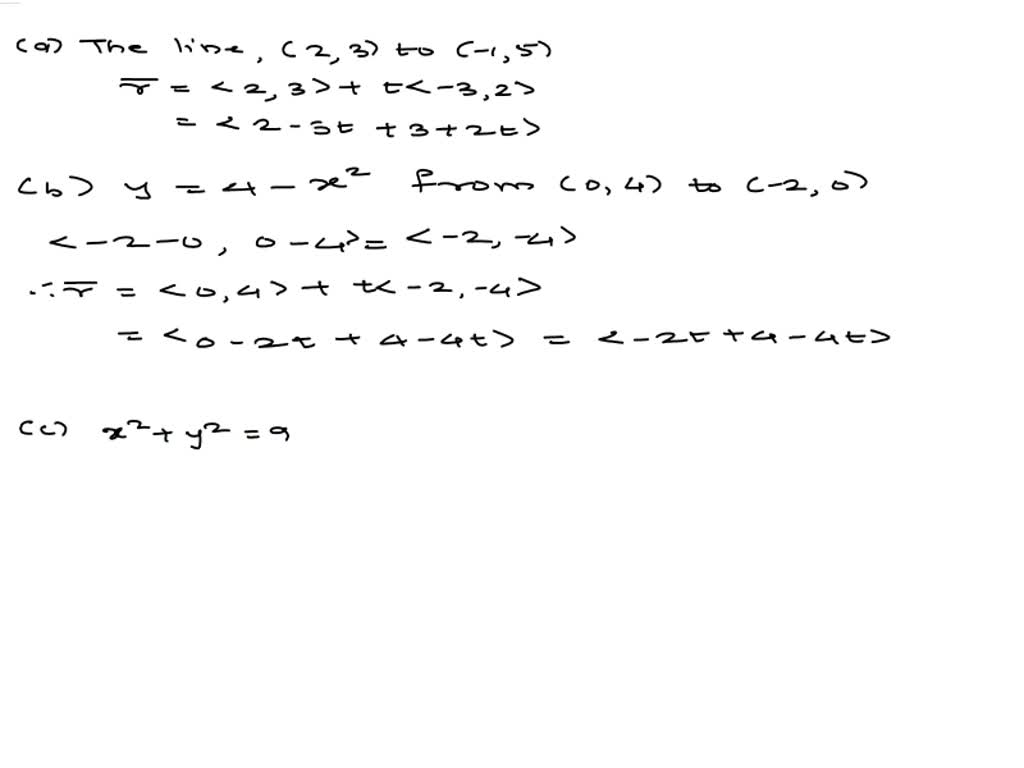 (a) The line, (2, 3) to (-1, 5)
r̅ = <2, 3> + t<-3, 2>
= <2 - 3t + 3 + 2t>
(b) y = 4 - x² from (0, 4) to (-2, 0)
<-2-0, 0-4> = <-2, -4>
∴ r̅ = <0, 4> + t<-2, -4>
= <0 - 2t + 4 - 4t> = <-2t + 4 - 4t>
(c) x² + y² = 9